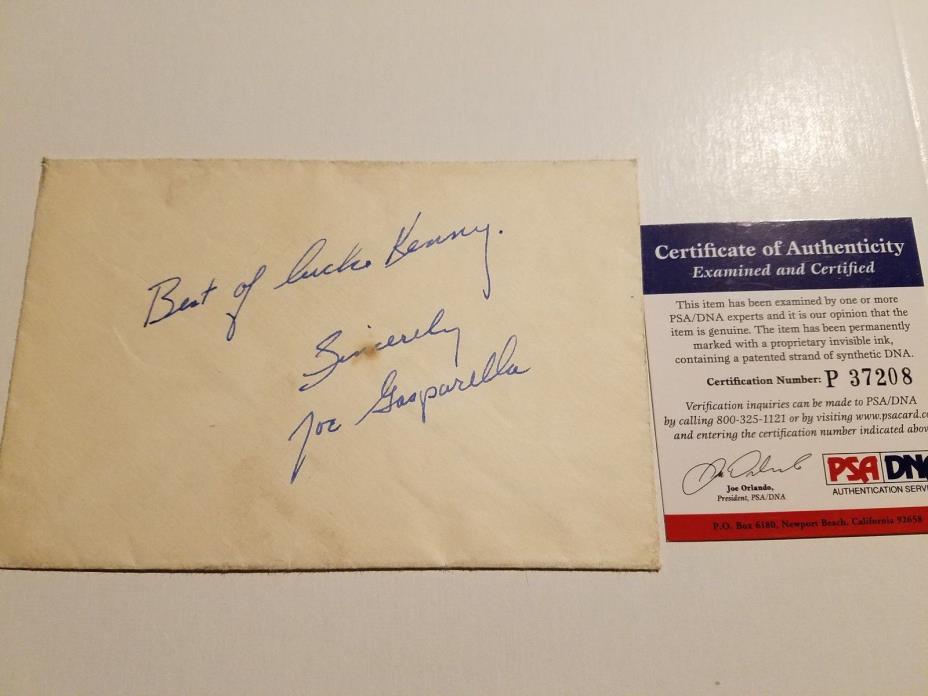 Best of luck Kenny.
Sincerely
Joe Gasparella
Certificate of Authenticity
Examined and Certified
This item has been examined by one or more
PSA/DNA experts and it is our opinion that the
item is genuine. The item has been permanently
marked with a proprietary invisible ink,
containing a patented strand of synthetic DNA.
Certification Number: P 37208
Verification inquiries can be made to PSA/DNA
by calling 800-325-1121 or by visiting www.psacard.co
and entering the certification number indicated abov
Joe Orlando,
President, PSA/DNA
PSA DNA
AUTHENTICATION SERV
P.O. Box 6180, Newport Beach, California 92658